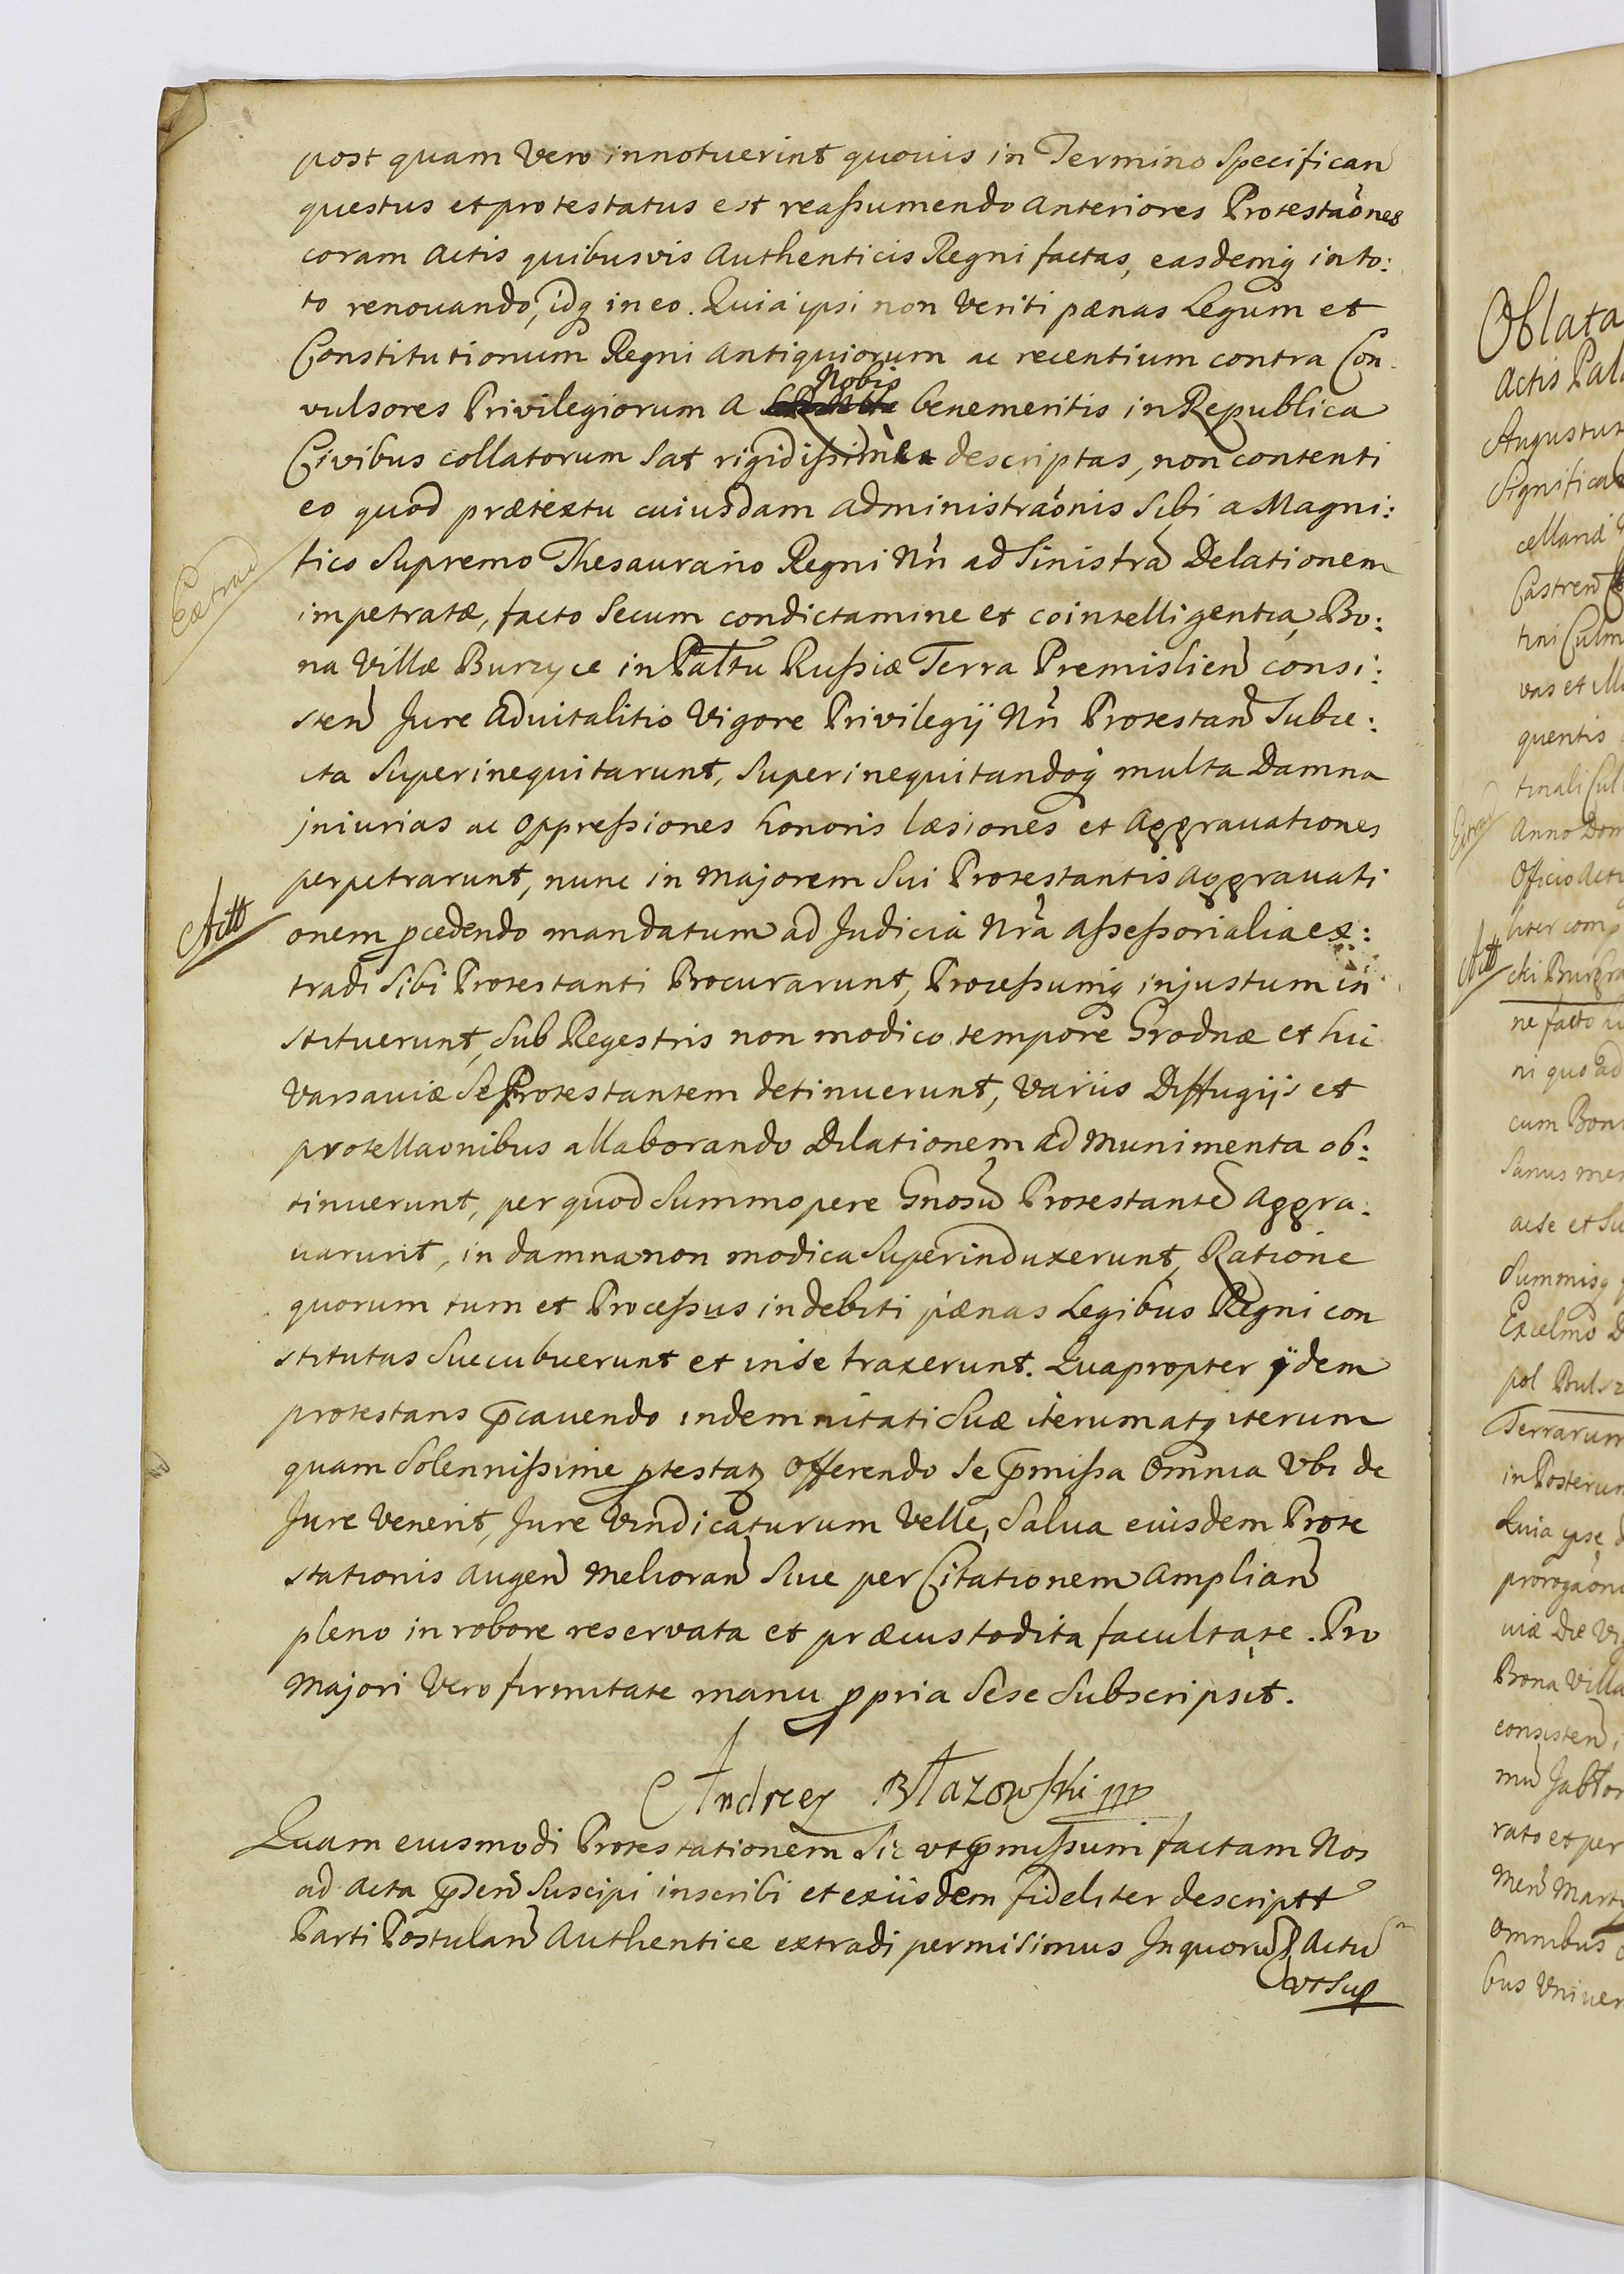 post quam Vero innotuerint quouis in Termino Specifican
questus et protestatus est reaßumendo anteriores Protestaões
coram actis quibusvis Authenticis Regni factas, easdemq in to:
to renouando, idq in eo. Quia ipsi non Veriti pænas Legum et
Constitutionum Regni antiquiorum ac recentium contra Con
vulsores Privilegiorum a Nobis benemeritis in Republica
Civibus collatorum Sat rigidißime descriptas, non contenti
eo quod prætextu cuiusdam administraõnis Sibi a Magni:
fico Supremo Thesaurario Regni Nri ad Sinistra Delationem
Extrad
impetratæ, facto Secum condictamine et cointelligentia, Bo:
na Villæ Burzyce in Pallu Rußiæ Terra Premislien consi:
sten Jure aduitalitio Vigore Privilegij Nri Protestan Subie:
cta Superinequitarunt, Superinequitandoq multa Damna
jniurias ac oppreßiones honoris læsiones et aggrauationes
perpetrarunt, nunc in majorem Sui Protestantis aggrauati
Actt
onem pcedendo mandatum ad Judicia Nra aßeßorialia ex:
tradi Sibi Protestanti Procurarunt, Proceßumq injustum in
stituerunt, Sub Regestris non modico tempore Grodnæ et hic
Varsauiæ Se Protestantem detinuerunt, Variis Diffugijs et
protellaonibus allaborando Dilationem ad munimenta ob:
tinuerunt, per quod Summopere Gnosu Protestante aggra:
uarunt, in damna non modica Superinduxerunt, Ratione
quorum tum et Proceßus indebiti pænas Legibus Regni con
stitutas Succubuerunt et in se traxerunt. Quapropter ijdem
protestans pcauendo indemnitati Suæ iterum atq iterum
quam Solennißime ptestatz offerendo Se pmißa omnia Vbi de
Jure Venerit, Jure Vindicaturum Velle, Salua eiusdem Prote
stationis augen melioran Siue per Citationem amplian
pleno in robore reservata et præcustodita facultate. Pro
majori Vero firmitate manu ppria Sese Subscripsit.
Andrzej Błazowski mp
Quam eiusmodi Protestationem Sic vt pmißum factam Nos
ad acta pden Suscipi inscribi et exiisdem fideliter descriptt
Parti Postulan Authentice extradi permisimus Inquoru Actu
vt Sup
Oblata
actis Pal
Augustus
Significa
cellaria
Castren
tini Culm
vas et
quentis
tinali Cul
Extrad
Anno Dom
Officio acti
liter comp
Actt
cki Burgra
ne facto
ni quo ad
cum Bon
Sanus men
ac se et Su
Summisq
Excelmo D
pol
Terrarum
in Posterum
Quia ipse
prorogaon
uiæ Die Vig
Bona Villa
consisten,
mu Jabłon
rato et per
Men Mart
omnibus
bus Vniuer